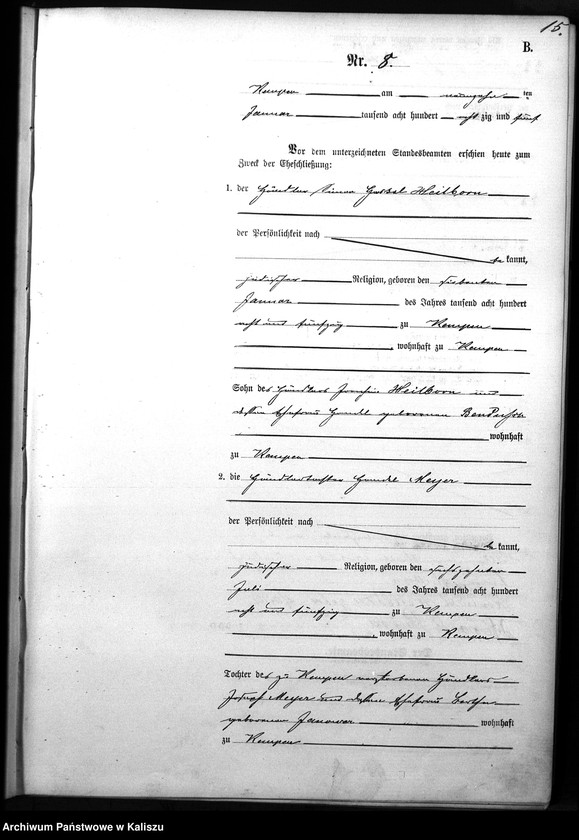 15.
B.
Nr. 8.
Kempen am neunzehn ten
Januar tausend acht hundert acht zig und fünf
Vor dem unterzeichneten Standesbeamten erschien heute zum
Zweck der Eheschließung:
1. der Händler Simon Heilborn
der Persönlichkeit nach
be kannt,
jüdischer Religion, geboren den siebenten
Januar des Jahres tausend acht hundert
acht und fünfzig zu Kempen
, wohnhaft zu Kempen
Sohn des Händlers Joachim Heilborn und
dessen Ehefrau Handel geborenen
wohnhaft
zu Kempen
2. die Händlertochter Handel Meyer
der Persönlichkeit nach
be kannt,
jüdischer Religion, geboren den sechszehnten
Juli des Jahres tausend acht hundert
acht und fünfzig zu Kempen
, wohnhaft zu Kempen
Tochter des zu Kempen verstorbenen Händlers
Josef Meyer und dessen Ehefrau Bertha
geborenen Janower wohnhaft
zu Kempen
Archiwum Państwowe w Kaliszu